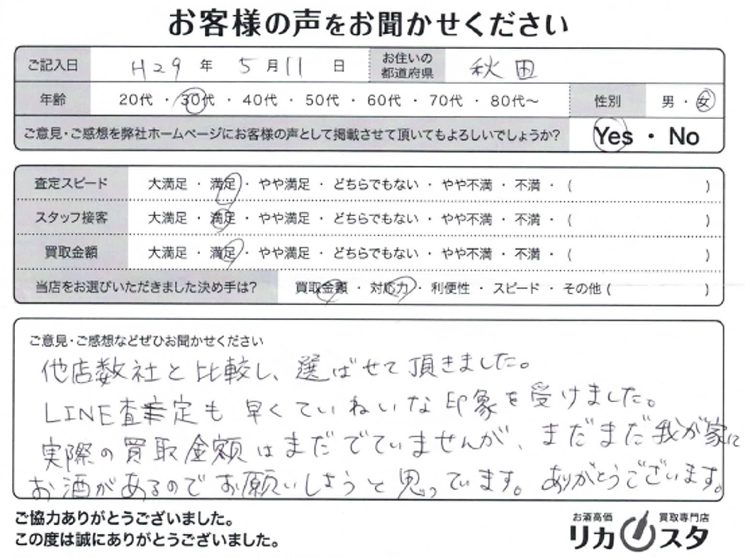 お客様の声をお聞かせください
ご記入日 H29 年 5 月 11 日 お住いの都道府県 秋田
年齢 20代 ・ 30代 ・ 40代 ・ 50代 ・ 60代 ・ 70代 ・ 80代〜 性別 男 ・ 女
ご意見・ご感想を弊社ホームページにお客様の声として掲載させて頂いてもよろしいでしょうか? Yes ・ No
査定スピード 大満足 ・ 満足 ・ やや満足 ・ どちらでもない ・ やや不満 ・ 不満 ・ ( )
スタッフ接客 大満足 ・ 満足 ・ やや満足 ・ どちらでもない ・ やや不満 ・ 不満 ・ ( )
買取金額 大満足 ・ 満足 ・ やや満足 ・ どちらでもない ・ やや不満 ・ 不満 ・ ( )
当店をお選びいただきました決め手は? 買取金額 ・ 対応力 ・ 利便性 ・ スピード ・ その他 ( )
ご意見・ご感想などぜひお聞かせください
他店数社と比較し、選ばせて頂きました。
LINE査定も早くていねいな印象を受けました。
実際の買取金額はまだでていませんが、まだまだ我が家に
お酒があるのでお願いしようと思っています。ありがとうございます。
ご協力ありがとうございました。
この度は誠にありがとうございました。
お酒高価 買取専門店
リカスタ